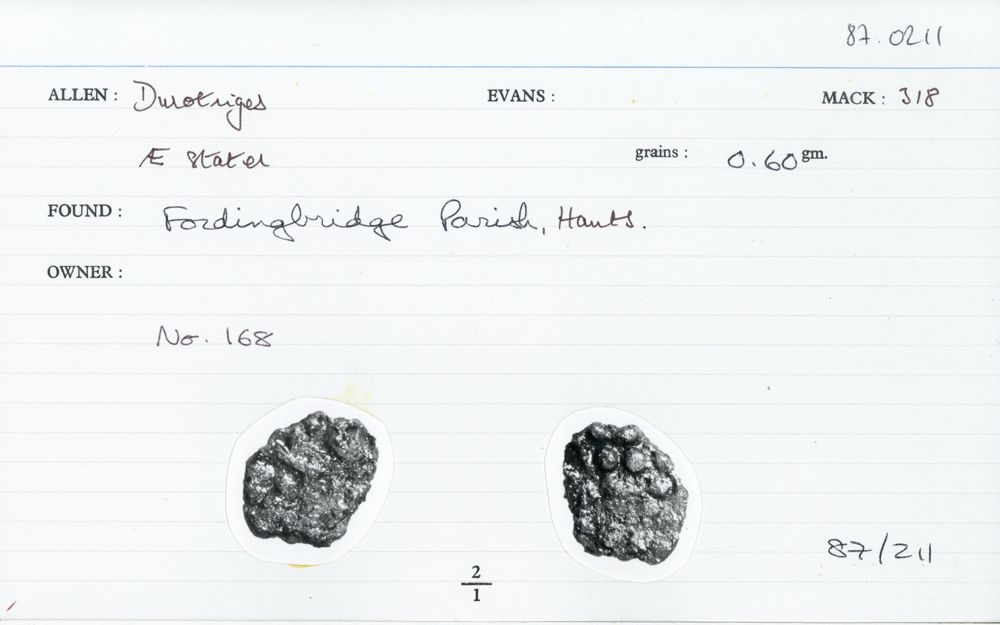 87.0211
ALLEN : Durotriges EVANS : MACK : 318
Æ Stater grains : 0.60 gm.
FOUND : Fordingbridge Parish, Hants.
OWNER :
No. 168
87/211
2
1